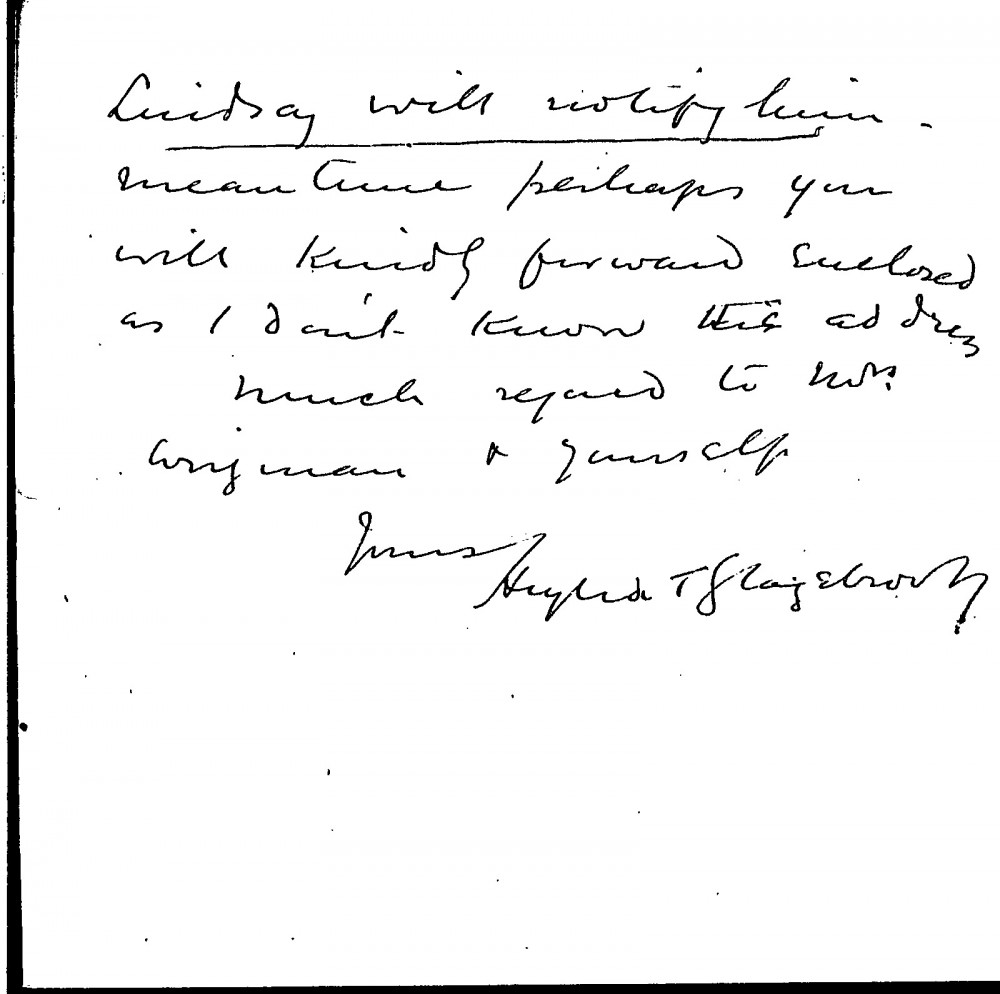 Lindsay will notify him.
meantime perhaps you
will kindly forward enclosed
as I don't know his address
much regard to Mrs.
Wrigman & yourself
Yours
Hugh de T Glazebrook